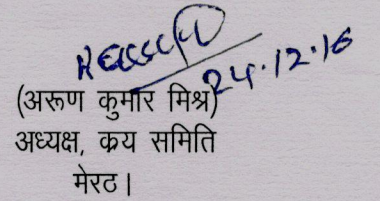 24.12.16
(अरूण कुमार मिश्र)
अध्यक्ष, क्रय समिति
मेरठ।